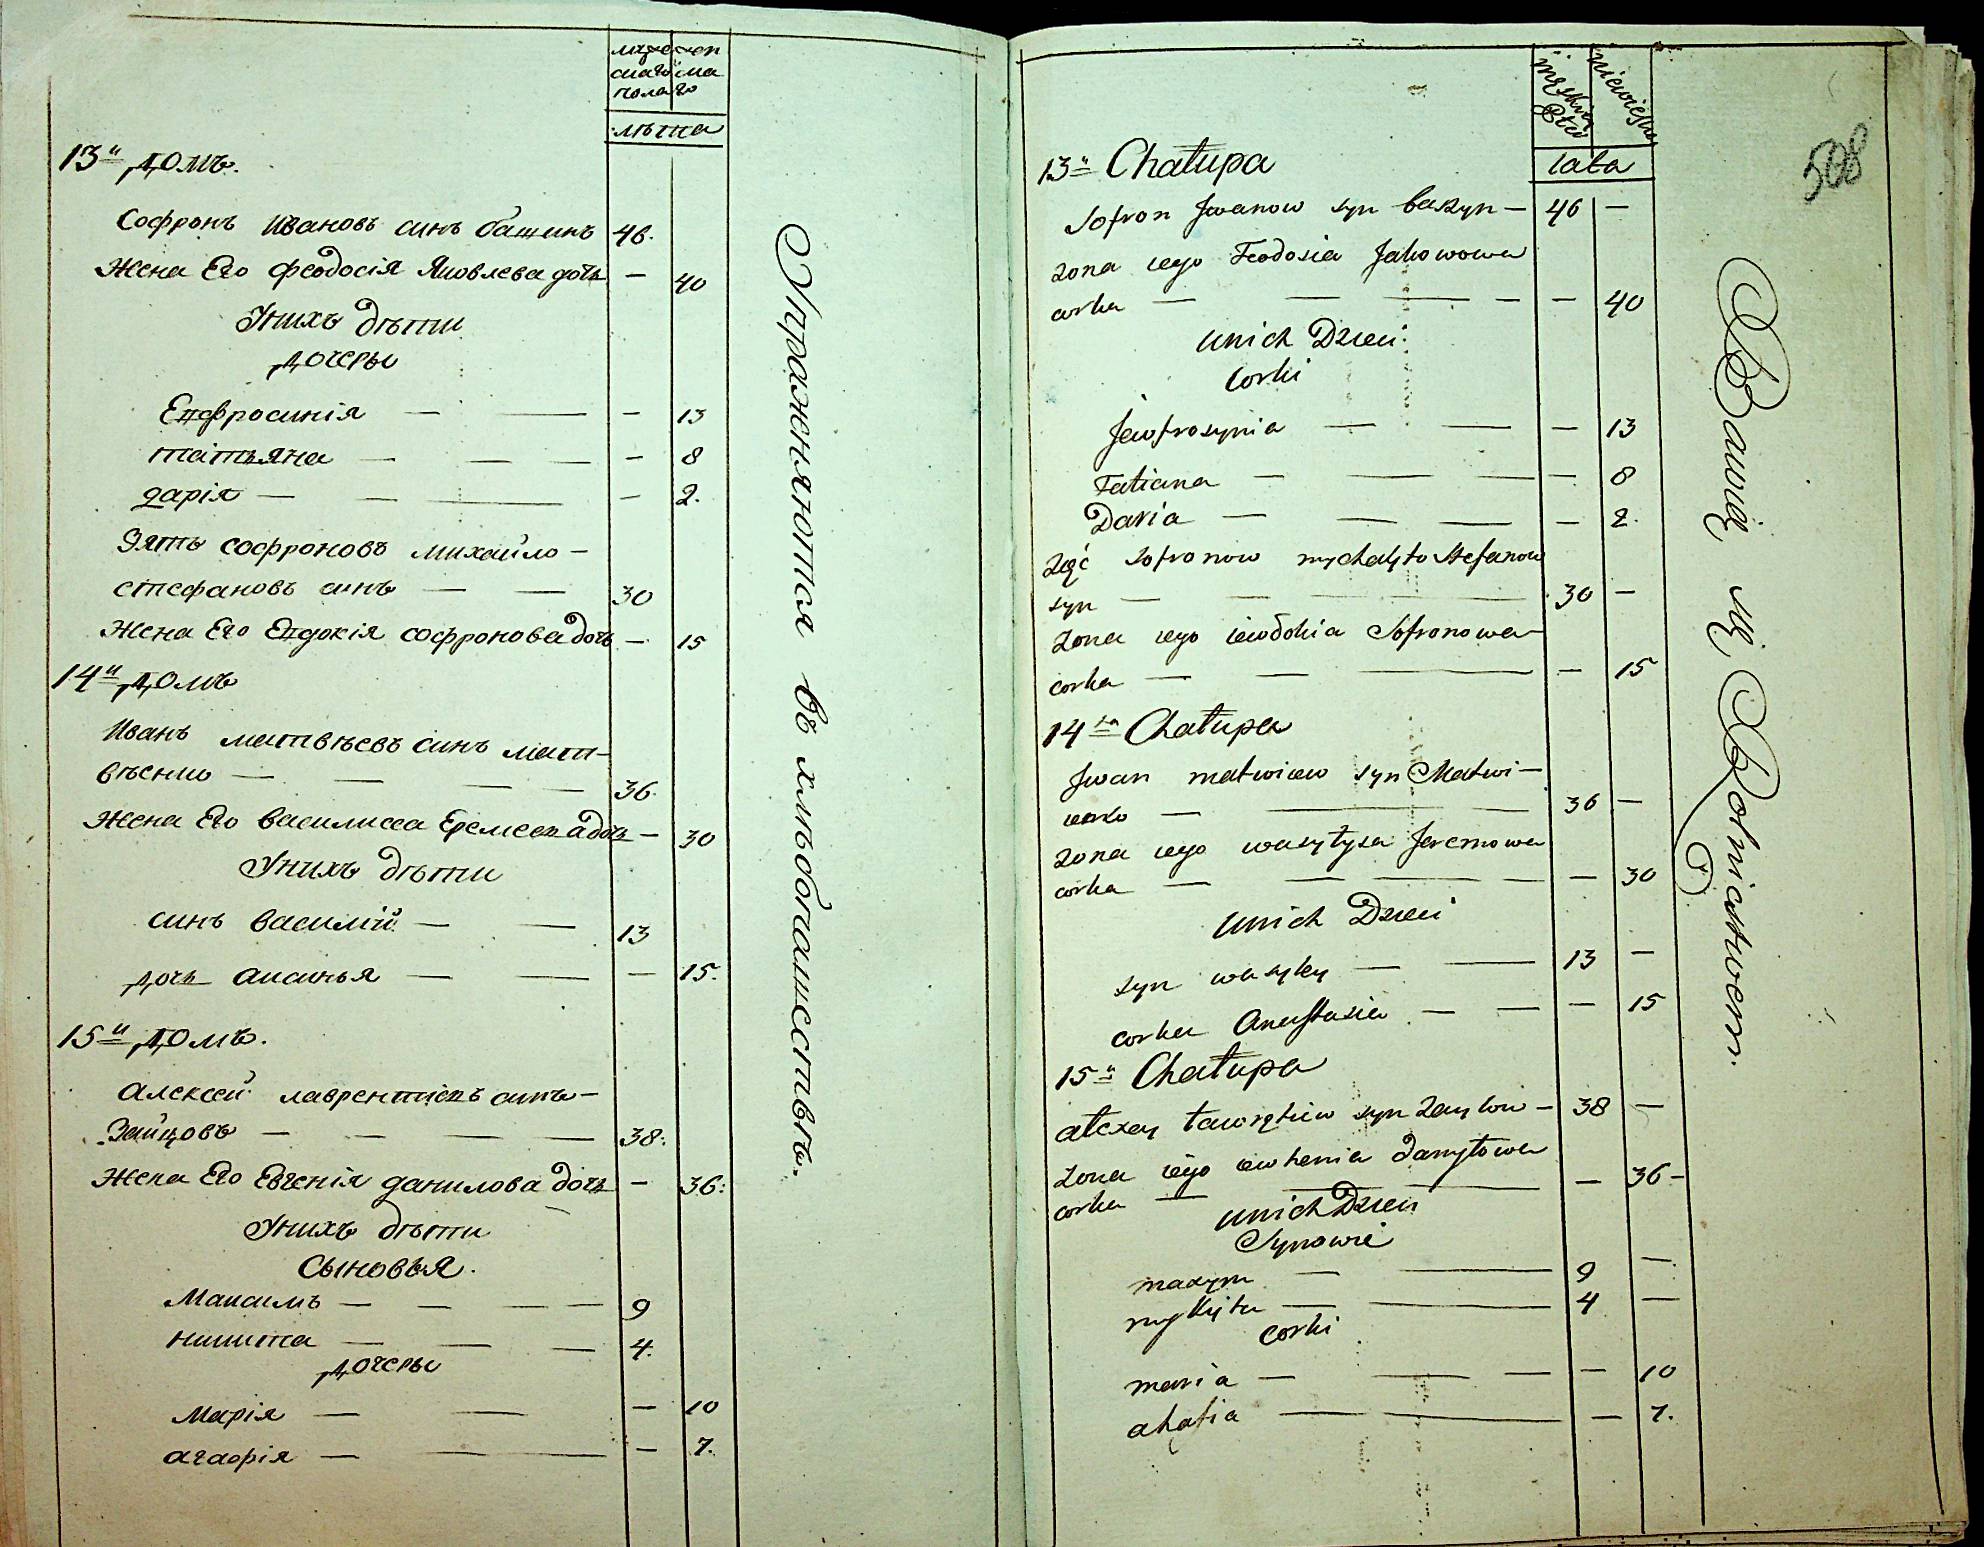 мужес жен
скаго ска
пола го
лѣта
13й домъ.
Софронъ Ивановъ синъ башинъ 46.
Жена Его Феодосія Яковлева дочь — 40
У нихъ дѣти
дочеры
Епфросинія — — — 13
татьяна — — — — 8
дарія — — — — 2.
Зять софроновъ михайло —
стефановъ синъ — — 30
Жена Его Епдокія софронова дочь — 15
14й домъ
Иванъ матвѣевъ синъ мат-
вѣенко — — — — 36.
Жена Его василисса Еремеепа дочь — 30
У нихъ дѣти
синъ василій — — 13
дочь аксинья — — — 15.
15й домъ.
алексей лаврентіепъ синъ —
Зайцовъ — — — — 38:
Жена Его Евгенія данилова дочь — 36:
У нихъ дѣти
Сыновья.
Максимъ — — — — 9
никита — — — 4.
дочеры
Марія — — — 10
агафія — — — 7.
Упражняются въ хлѣбопашествѣ.
508
męskiej Płci
niewieściej
lata
13а Chałupa
Sofron Jwanow syn baszyn — 46 —
zona iego Feodosia Jakowowa
corka — — — — — 40
unich Dzieci
Corki
Jewfrosynia — — — 13
Tatiana — — — — 8
Daria — — — — 2.
zięć Sofronow mychayło Stefanow
syn — — — 30 —
zona iego iewdokia Sofronowa
corka — — — — 15
14ta Chałupa
Jwan matwiiew syn Matwi—
ienko — — 36 —
zona iego wasyłysa Jeremowa
corka — — — — — 30
unich Dzieci
syn wasyley — — 13 —
corka Anastasia — — — 15
15а Chałupa
ałexey ławrętiew syn Zaytow — 38 —
zona iego iewhenia danyłowa
corka — — — — 36 —
unich Dzieci
Synowie
maxym — — 9 —
mykita — — 4 —
Corki
maria — — — — 10
ahafia — — — 7.
Bawią się Rolnictwem.